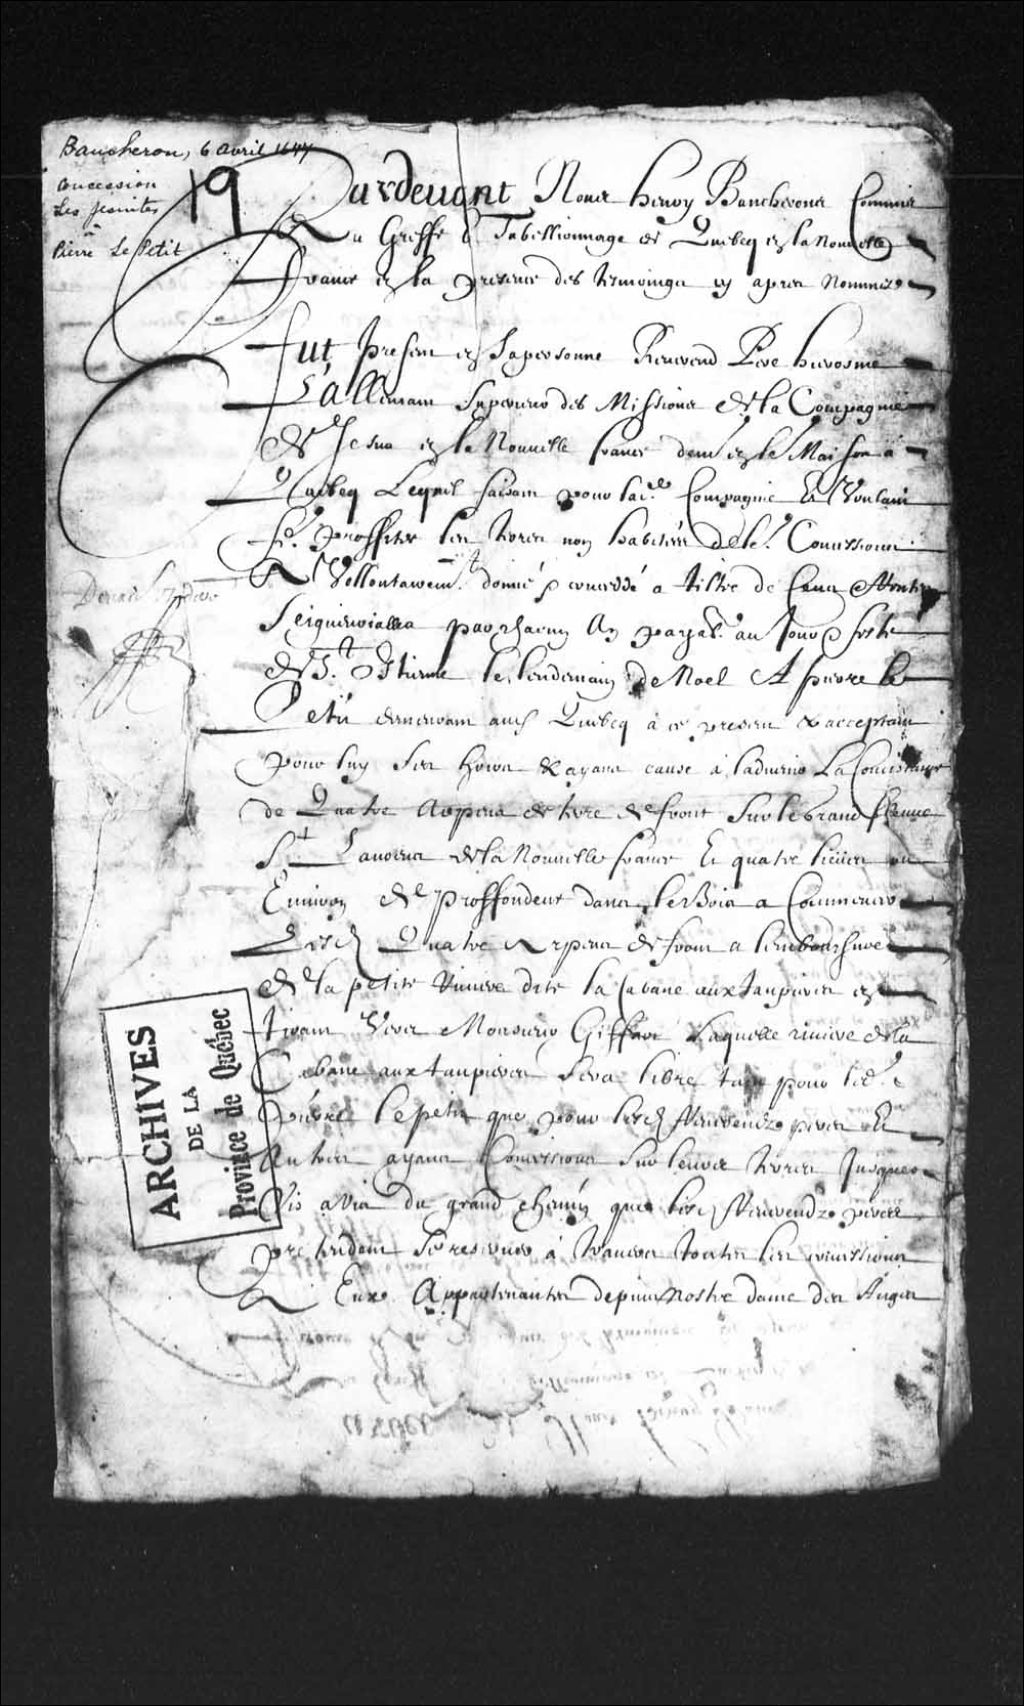 Bancheron, 6 avril 1647
Concession
Les Jesuites
à
Pierre Le Petit
19
Pardevant Nous henry Bancheron Commis
Au Greffe & Tabellionnage de Quebecq en la Nouvelle
France en la presence des tesmoings cy apres Nommez
fut Present en Sa personne Reverend Pere hierosme
L'allemant Superieur des Missions de la Compagnie
de Jesus en la Nouvelle france demt en le Maison à
Quebecq Lequel faisant pour lad. Compagnie Et Voulant
proffiter les terres non habitées de le. Concession
A Vollontairemt donné & concedé a tiltre de Cens & Rentes
Seigneurialles par chacun An payab. au Jour & feste
de St. Estienne le lendemain de Noel A pierre le
Petit demeurant aud Quebecq à ce present & acceptant
pour luy Ses hoirs & ayans cause à l'advenir La Consistance
de Quatre Arpens de terre de front Sur le Grand fleuve
St Laurens de la Nouvelle france Et quatre lieües ou
Environ de proffondeur dans les Bois a Commencer
Lesd Quatre Arpens de front a l'embouchure
de la petite Riviere dite la Cabane aux taupiers en
tirant Vers Monsieur Giffart Laquelle riviere de la
Cabane aux taupiers Sera libre tant pour led.
pierre le petit que pour lesd Reverendz peres Et
Autres ayans Concessions Sur leurs terres Jusques
Vis a vis du grand chemin que lesd Reverendz peres
pretendent Se reserver à travers toutes les concessions
A Eux Appartenantes depuis Nostre dame des Anges
ARCHIVES
DE LA
Province de Québec